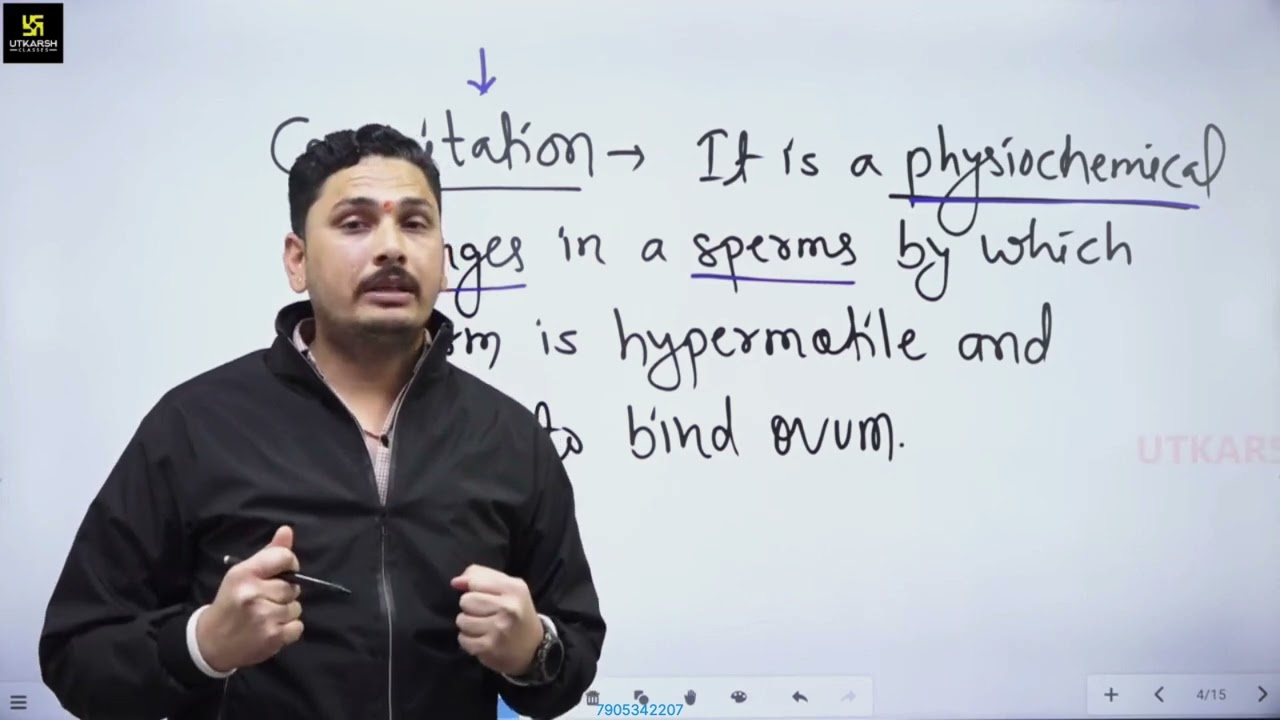 UTKARSH
CLASSES
itation → It is a physiochemical
nges in a sperms by which
rm is hypermotile and
to bind ovum.
UTKARS
7905342207
4/15